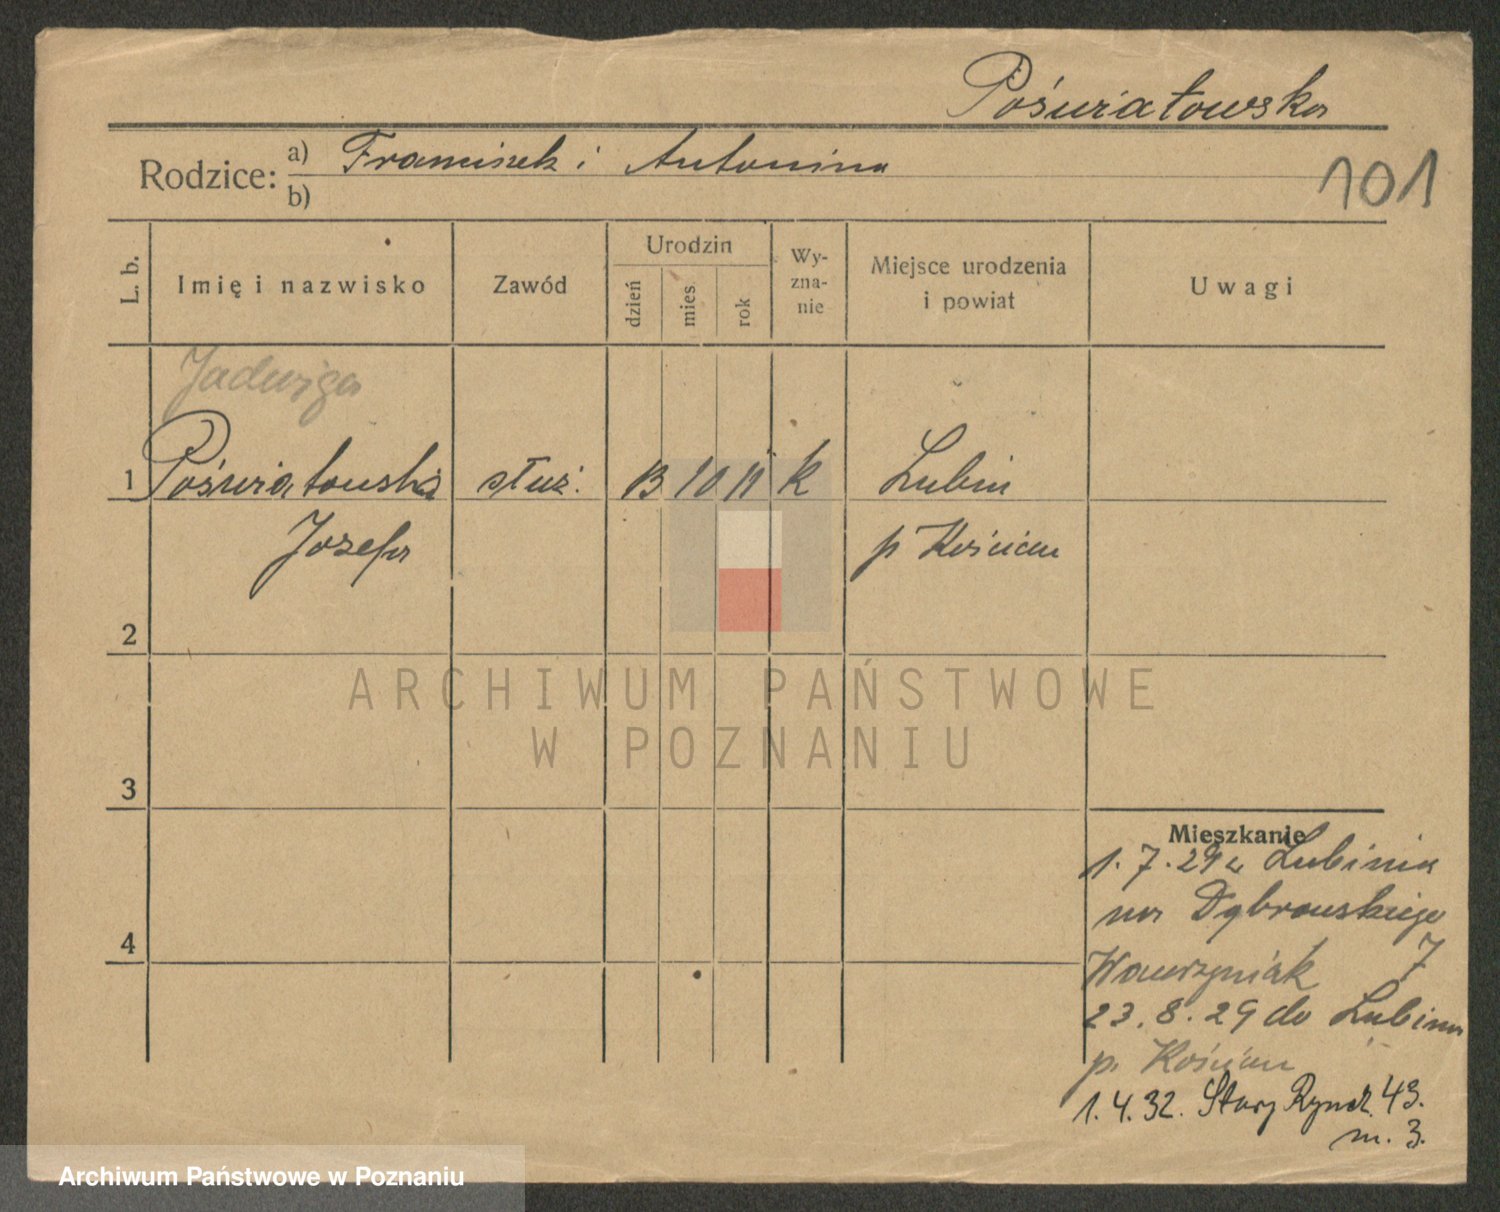 Poświatowska
Rodzice: a) Franciszek i Antonina
b)
101
L. b. Imię i nazwisko Zawód Urodzin dzień mies. rok Wy-zna-nie Miejsce urodzenia i powiat Uwagi
Jadwiga
1 Poświatowska służ. 13 10 11 k Lubin
Józefa p Kościan
2
3
4
Mieszkanie
1.7.29 z Lubinia
na Dąbrowskiego
Wawrzyniak 7
23.8.29 do Lubina
p. Kościan
1.4.32. Stary Rynek 43.
m. 3.
ARCHIWUM PAŃSTWOWE
W POZNANIU
Archiwum Państwowe w Poznaniu